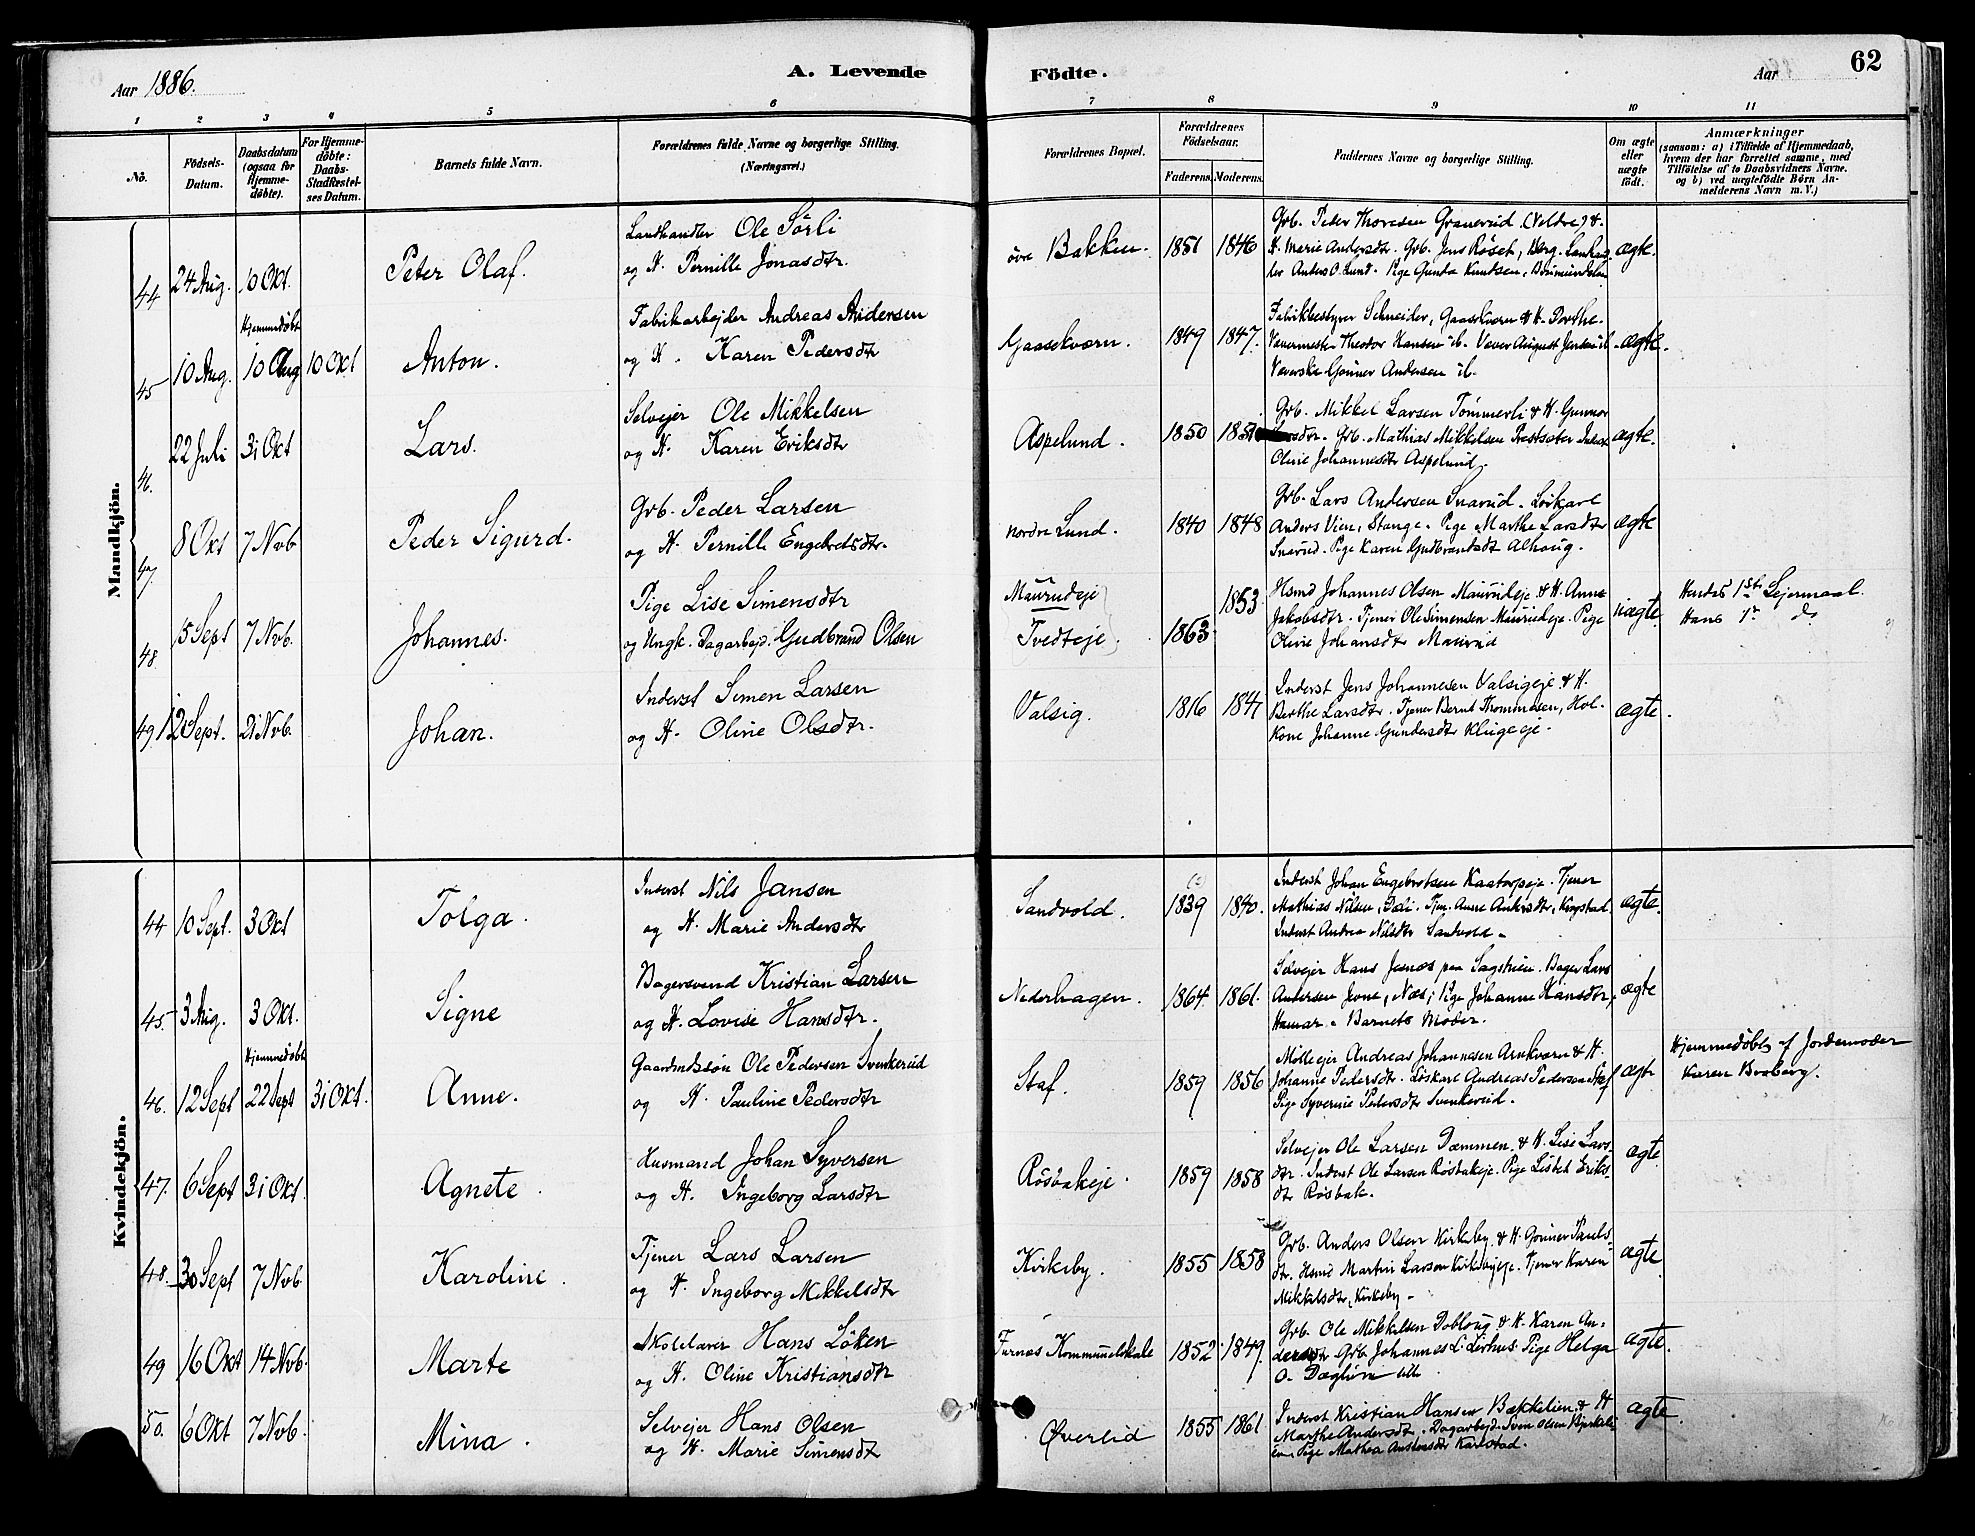 Aar 1886.
A. Levende
Födte.
Aar
62
1 2 3 4 5 6 7 8 9 10 11
No.
Födsels-Datum.
Daabsdatum (ogsaa for Hjemmedöbte).
For Hjemmedöbte: Daabs-Stadfæstelses Datum.
Barnets fulde Navn.
Forældrenes fulde Navne og borgerlige Stilling.
(Næringsvei.)
Forældrenes Bopæl.
Forældrenes Födselsaar.
Faderens. Moderens.
Faddernes Navne og borgerlige Stilling.
Om ægte eller uægte födt.
Anmærkninger
(saasom: a) i Tilfælde af Hjemmedaab,
hvem der har forrettet samme, med
Tilföielse af to Daabsvidners Navne.
og b) ved uægtefödte Börn An-
melderens Navn m. V.)
Mandkjön.
44 24 Aug. 10 Okt. Peter Olaf.
Landhandler Ole Sörli
og H. Pernille Jonasdtr.
övre Bakken. 1851 1846
Grb. Peder Thoresen Granerud (Veldre) & H. Marie Andersdtr. Grb. Jens Röset, Berg. Landhandler Anders O. Lund. Pige Gunda Knudsen, Brumunddalen
ægte.
45 10 Aug. Hjemmedöbt 10 Aug 10 Okt Anton.
Fabrikarbejder Andreas Andersen
og H. Karen Pedersdtr
Gaasekværn. 1849 1847.
Fabrikbestyrer Schneider, Gaasekværn & H. Dorthe.
Vævermester Theodor Hansen ib. Væver August Jensen ib.
Væverske Gunner Andersen ib.
ægte.
46. 22 Juli 31 Okt Lars.
Selvejer Ole Mikkelsen
og H. Karen Eriksdtr
Aspelund. 1850 1851
Grb. Mikkel Larsen Tömmerli & H. Gunnor
Grb. Mathias Mikkelsen Prestsæter
Oline Johannesdtr Aspelund.
ægte.
47. 8 Okt 7 Nvb Peder Sigurd.
Grb. Peder Larsen
og H. Pernille Engebretsdtr.
nordre Lund. 1840 1848
Grb. Lars Andersen Snarud. Löskarl
Anders Vien, Stange. Pige Marthe Larsdtr
Snarud. Pige Karen Gudbrandsdt Alhaug.
ægte
48. 5 Sept 7 Nvb. Johannes.
Pige Lise Simensdtr
og Ungk. Dagarbejd. Gudbrand Olsen
Maurudeje
Tvedteje
1863. 1853.
Hsmd Johannes Olsen Maurudeje & H. Anne
Jakobsdtr. Tjener Ole Simensen Maurudeje. Pige
Oline Johansdtr Maurud
uægte
Hendes 1ste Lejermaal.
Hans 1te do
49. 12 Sept. 21 Nvb. Johan.
Inderst Simen Larsen
og H. Oline Olsdtr.
Valsig. 1816 1841
Inderst Jens Johannesen Valsigeje & H.
Berthe Larsdtr. Tjener Bernt Thommesen, Hol-
Kone Johanne Gundersdtr Klugeje.
ægte.
Kvindekjön.
44 10 Sept. 3 Okt Tolga.
Inderst Nils Jansen
og H. Marie Andersdtr
Sandvold. 1839 1840.
Inderst Johan Engebretsen Kaatorpeje. Tjener
Mathias Nilsen, Deli. Tjen. Anne Andersdtr, Kongstad.
Inderst Andrea Nilsdtr Sandvold.
ægte.
45. 3 Aug. 3 Okt. Signe
Bagersvend Kristian Larsen
og H. Lovise Hansdtr.
Nederhagen. 1864 1861.
Selvejer Hans Jesnæs paa Sagstuen. Bager Lars
Andersen Jevne, Næs; Pige Johanne Hansdtr,
Hamar. Barnets Moder.
ægte
46. 12 Sept Hjemmedöbt 22 Sept 31 Okt. Anne.
Gaardmdssön Ole Pedersen Svenkerud
og H. Pauline Pedersdtr
Staf. 1859 1856
Mölleejer Andreas Johannesen Arnkværn & H.
Johanne Pedersdtr. Löskarl Andreas Pedersen Staf
Pige Syverine Pedersdtr Svenkerud.
ægte
Hjemmedöbt af Jordemoder
Karen Broberg.
47. 6 Sept 31 Okt. Agnete.
Husmand Johan Syversen
og H. Ingeborg Larsdtr
Rösbakeje. 1859 1858
Selvejer Ole Larsen Dæmmen & H. Lise Lars-
dtr. Inderst Ole Larsen Rösbakeje. Pige Lisbet Eriks-
dtr Rösbak.
ægte
48. 30 Sept 7 Nvb. Karoline.
Tjener Lars Larsen
og H. Ingeborg Mikkelsdtr
Kirkeby. 1855 1858
Grb. Anders Olsen Kirkeby & H. Gunner Pauls-
dtr. Hsmd Martin Larsen Kirkebyeje. Tjener Karen
Mikkelsdtr, Kirkeby.
ægte
49 16 Okt 14 Nvb. Marte
Skolelærer Hans Löken
og H. Oline Kristiansdtr
Furnæs Kommuneskole 1852 1849.
Grb. Ole Mikkelsen Dobloug & H. Karen An-
dersdtr Grb. Johannes L. Lirhus. Pige Helga
O. Dæhlin
ægte.
50. 6 Okt 7 Nvb. Mina.
Selvejer Hans Olsen
og H. Marie Simensdtr
Överlid 1855 1861
Inderst Kristian Hansen Bækkelien & H
Marthe Andersdtr. Dagarbejd. Sven Olsen
Pige Mathea Andersdtr Karlstad.
ægte.